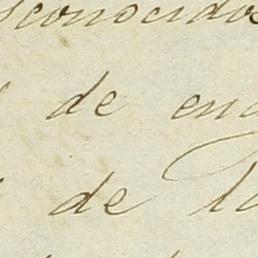 sconocidos
de en
de la